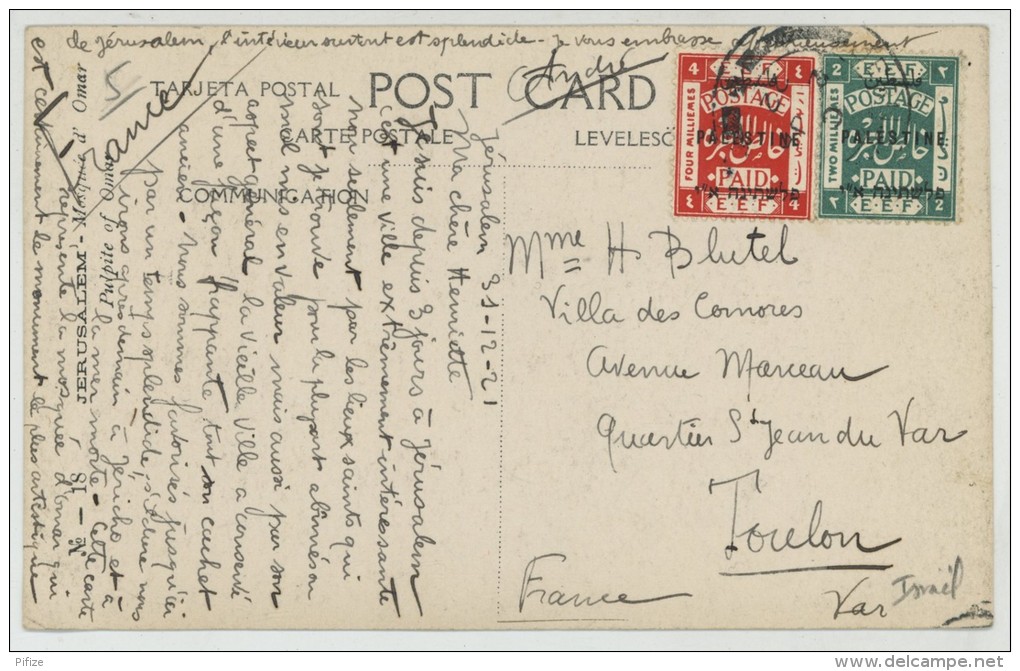 de Jérusalem, l'intérieur surtout est splendide - Je vous embrasse affectueusement
André
5
France
TARJETA POSTAL
POST CARD
CARTE POSTALE
LEVELESÖ
COMMUNICATION
Jérusalem 31-12-21
Ma chère Henriette
Je suis depuis 3 jours à Jérusalem
c'est une ville extrêmement intéressante
non seulement par les lieux saints qui
sont je trouve pour la plupart abîmés ou
mal mis en valeur mais aussi par son
aspect général. La vieille ville a conservé
d'une façon frappante tout son cachet
ancien - Nous sommes favorisés jusqu'ici
par un temps splendide,
irons après demain à Jéricho et à
la mer morte - Cette carte
représente la mosquée d'Omar qui
est certainement le monument le plus artistique
No 18 - JERUSALEM - Mosquée d'Omar
of Omar
4 E.E.F. ٤
POSTAGE
PALESTINE
FOUR MILLIEMES
خالص اجره
PAID
פלשתינה א״י
٤ E.E.F. 4
2 E.E.F. ٢
POSTAGE
PALESTINE
TWO MILLIEMES
خالص اجره
PAID
פלשתינה א״י
٢ E.E.F. 2
Mme H Blutel
Villa des Comores
Avenue Marceau
Quartier St Jean du Var
Toulon
France
Var
Israël
Pifize
delcampe.net